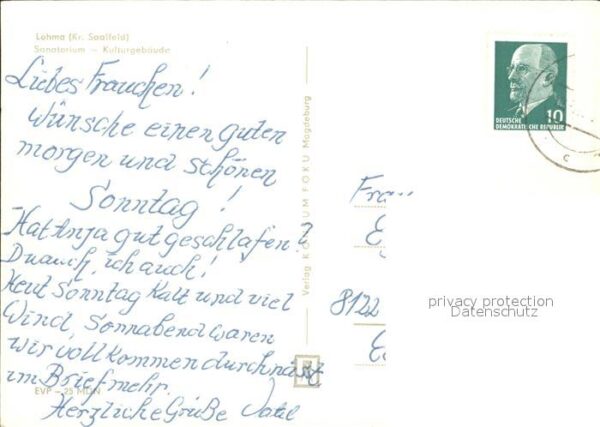 Lohma (Kr. Saalfeld)
Sanatorium — Kulturgebäude
Liebes Frauchen!
Wünsche einen guten
morgen und schönen
Sonntag!
Hat Anja gut geschlafen?
Du auch, ich auch!
Heut Sonntag Kalt und viel
Wind, Sonnabend waren
wir vollkommen durchnässt
im Brief mehr.
Herzliche Grüße Vati
EVP – 25 MDN
Verlag KONSUM FOKU Magdeburg
DEUTSCHE
DEMOKRATISCHE REPUBLIK
10
Frau
8122
privacy protection
Datenschutz